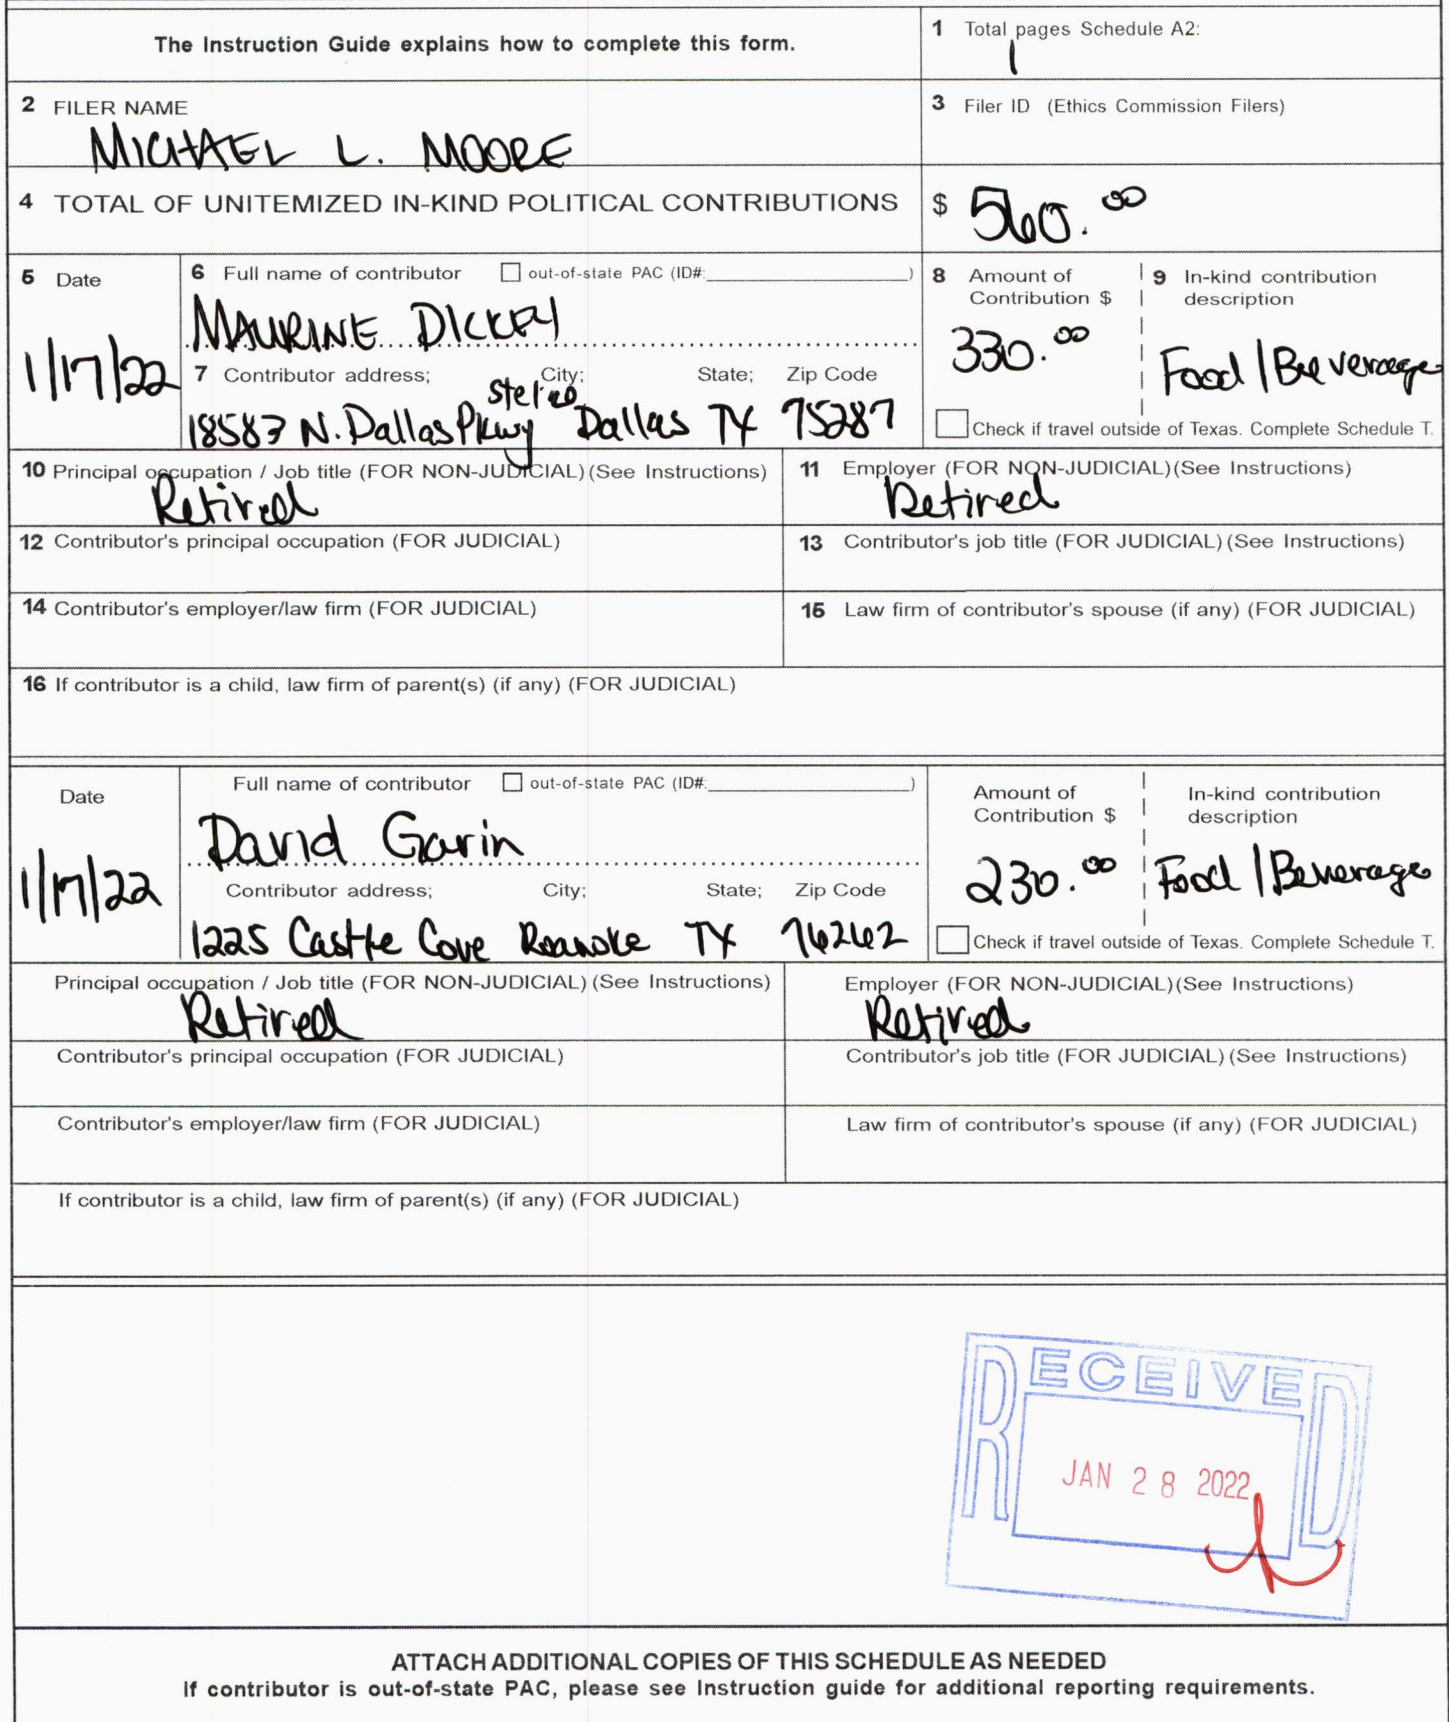 The Instruction Guide explains how to complete this form.
1 Total pages Schedule A2:
1
2 FILER NAME
MICHAEL L. MOORE
3 Filer ID (Ethics Commission Filers)
4 TOTAL OF UNITEMIZED IN-KIND POLITICAL CONTRIBUTIONS
$ 560.00
5 Date
1/17/22
6 Full name of contributor out-of-state PAC (ID#: )
MAURINE DICKEY
7 Contributor address; City; State; Zip Code
18583 N. Dallas Pkwy Dallas TX 75287
8 Amount of
Contribution $
330.00
9 In-kind contribution
description
Food / Beverage
Check if travel outside of Texas. Complete Schedule T.
10 Principal occupation / Job title (FOR NON-JUDICIAL) (See Instructions)
Retired
11 Employer (FOR NON-JUDICIAL) (See Instructions)
Retired
12 Contributor's principal occupation (FOR JUDICIAL)
13 Contributor's job title (FOR JUDICIAL) (See Instructions)
14 Contributor's employer/law firm (FOR JUDICIAL)
15 Law firm of contributor's spouse (if any) (FOR JUDICIAL)
16 If contributor is a child, law firm of parent(s) (if any) (FOR JUDICIAL)
Date
1/17/22
Full name of contributor out-of-state PAC (ID#: )
David Garin
Contributor address; City; State; Zip Code
1225 Castle Cove Roanoke TX 76262
Amount of
Contribution $
230.00
In-kind contribution
description
Food / Beverage
Check if travel outside of Texas. Complete Schedule T.
Principal occupation / Job title (FOR NON-JUDICIAL) (See Instructions)
Retired
Employer (FOR NON-JUDICIAL) (See Instructions)
Retired
Contributor's principal occupation (FOR JUDICIAL)
Contributor's job title (FOR JUDICIAL) (See Instructions)
Contributor's employer/law firm (FOR JUDICIAL)
Law firm of contributor's spouse (if any) (FOR JUDICIAL)
If contributor is a child, law firm of parent(s) (if any) (FOR JUDICIAL)
RECEIVED
JAN 28 2022
ATTACH ADDITIONAL COPIES OF THIS SCHEDULE AS NEEDED
If contributor is out-of-state PAC, please see Instruction guide for additional reporting requirements.